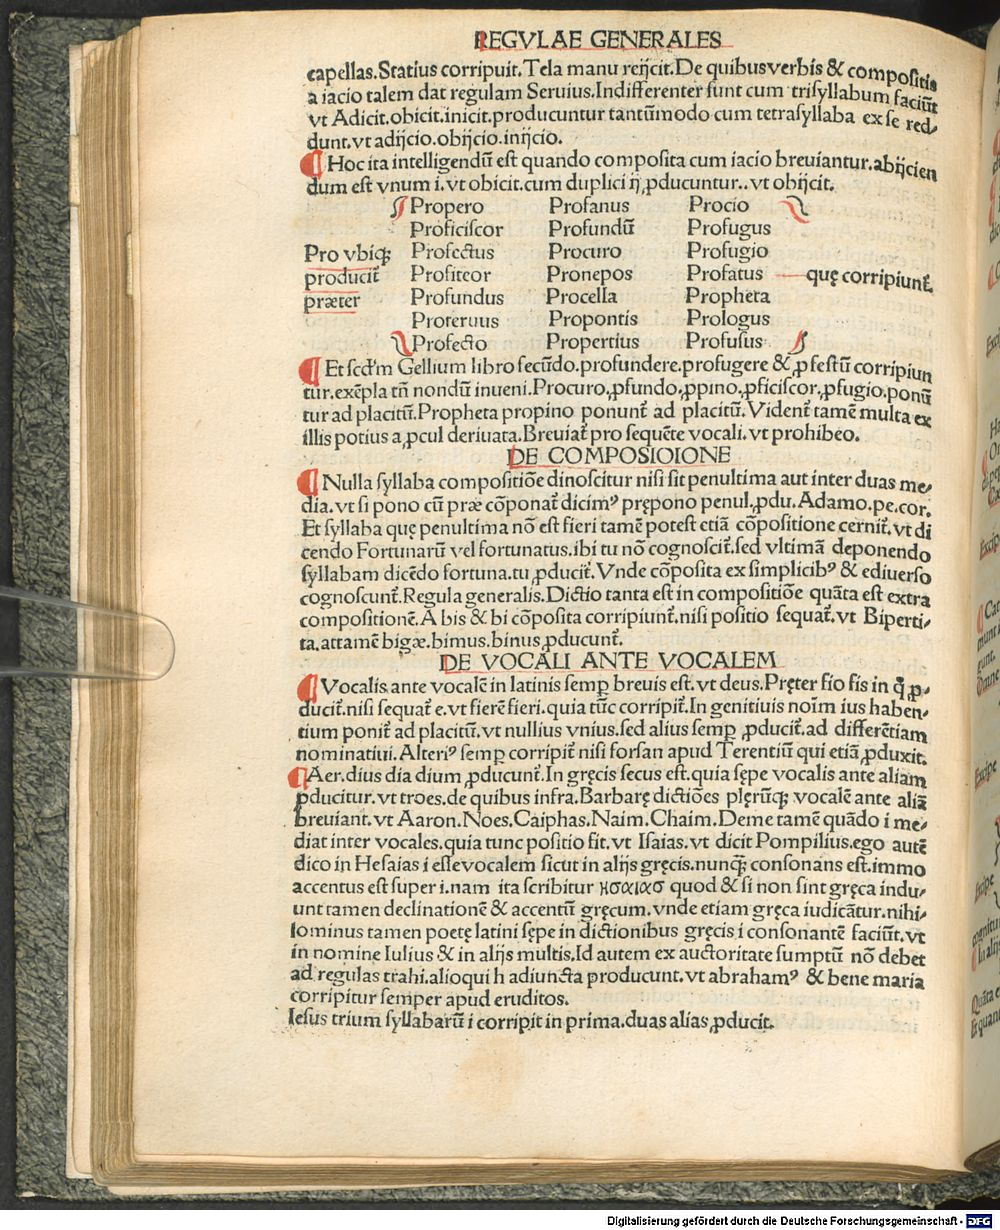 REGVLAE GENERALES
capellas.Statius corripuit.Tela manu reijcit.De quibus verbis & compositis
a iacio talem dat regulam Seruius.Indifferenter sunt cum trisyllabum faciūt
vt Adicit.obicit.inicit.producuntur tantūmodo cum tetrasyllaba ex se red⸗
dunt.vt adijcio.obijcio.inijcio.
¶ Hoc ita intelligendū est quando composita cum iacio breuiantur.abijcien
dum est vnum i.vt obicit.cum duplici ij ꝓducuntur..vt obijcit.
Propero Profanus Procio
Proficiscor Profundū Profugus
Pro vbiqꝫ Profectus Procuro Profugio
producit̄ Profiteor Pronepos Profatus quę corripiunt̄.
præter Profundus Procella Propheta
Proteruus Propontis Prologus
Profecto Propertius Profusus
¶ Et scd̄m Gellium libro secūdo.profundere.profugere & ꝓfestū corripiun
tur.exēpla tn̄ nondū inueni.Procuro,ꝓfundo,ꝓpino,ꝓficiscor,ꝓfugio.ponū
tur ad placitū.Propheta propino ponunt̄ ad placitū.Vident̄ tamē multa ex
illis potius a ꝓcul deriuata.Breuiat̄ pro sequēte vocali.vt prohibeo.
DE COMPOSIOIONE
¶ Nulla syllaba compositiōe dinoscitur nisi sit penultima aut inter duas me⸗
dia.vt si pono cū præ cōponat̄ dicimꝰ prępono penul.ꝓdu.Adamo.pe.cor.
Et syllaba quę penultima nō est fieri tamē potest etiā cōpositione cernit̄.vt di
cendo Fortunarū vel fortunatus.ibi tu nō cognoscit̄.sed vltimā deponendo
syllabam dicēdo fortuna.tu ꝓducit̄.Vnde cōposita ex simplicibꝰ & ediuerso
cognoscunt̄.Regula generalis.Dictio tanta est in compositiōe quāta est extra
compositionē.A bis & bi cōposita corripiunt̄.nisi positio sequat̄.vt Biperti⸗
ta.attamē bigæ.bimus.binus ꝓducunt̄.
DE VOCALI ANTE VOCALEM
¶ Vocalis ante vocalē in latinis semꝑ breuis est.vt deus.Pręter fio fis in q̄ ꝓ⸗
ducit̄.nisi sequat̄ e.vt fierē fieri.quia tūc corripit̄.In genitiuis noīm ius haben⸗
tium ponit̄ ad placitū.vt nullius vnius.sed alius semꝑ ꝓducit̄.ad differētiam
nominatiui.Alteriꝰ semꝑ corripit̄ nisi forsan apud Terentiū qui etiā ꝓduxit.
¶ Aer.dius dia dium ꝓducunt̄.In gręcis secus est.quia sępe vocalis ante aliam
ꝓducitur.vt troes.de quibus infra.Barbarę dictiōes plęrūqꝫ vocalē ante aliā
breuiant.vt Aaron.Noes.Caiphas.Naim.Chaim.Deme tamē quādo i me⸗
diat inter vocales.quia tunc positio fit.vt Isaias.vt dicit Pompilius.ego autē
dico in Hesaias i esse vocalem sicut in alijs gręcis.nunqꝫ consonans est.immo
accentus est super i.nam ita scribitur ησαιασ quod & si non sint gręca indu⸗
unt tamen declinationē & accentū gręcum.vnde etiam gręca iudicātur.nihi⸗
lominus tamen poetę latini sępe in dictionibus gręcis i consonantē faciūt.vt
in nomine Iulius & in alijs multis.Id autem ex auctoritate sumptū nō debet
ad regulas trahi.alioqui h adiuncta producunt.vt abrahamꝰ & bene maria
corripitur semper apud eruditos.
Iesus trium syllabarū i corripit in prima.duas alias ꝓducit.
Digitalisierung gefördert durch die Deutsche Forschungsgemeinschaft - DFG